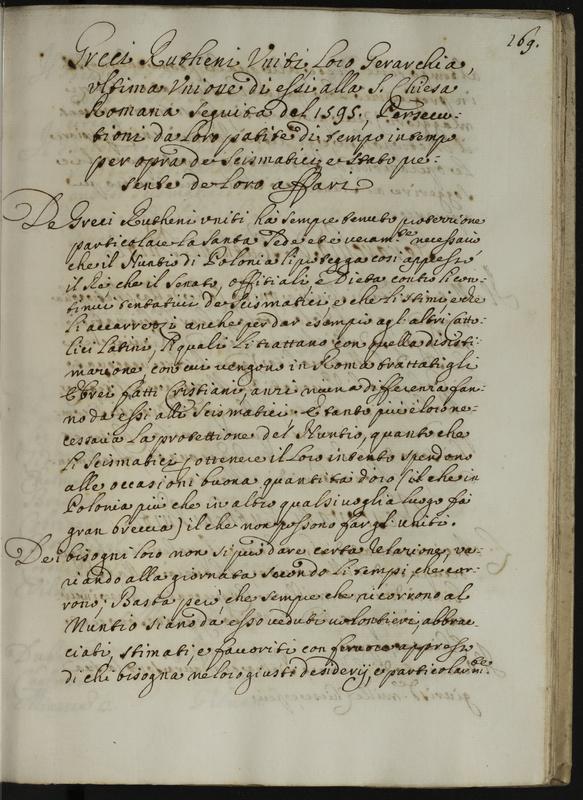 169.
Greci Rutheni Uniti, loro Gerarchia,
ultima Unione di essi alla S. Chiesa
Romana seguita del 1595., Persecu-
tioni da loro patite di tempo in tempo
per opra de Scismatici e stato pre-
sente de loro affari
De Greci Rutheni uniti ha sempre tenuto protettione
particolare la Santa Sede et è necessario
che il Nuntio di Polonia li protegga così appresso
il Rè che il Senato, offitiali e Dieta contro li con-
tinui tentativi de Scismatici, e che li stimi e che
li accarezzi anche per dar esempio agl'altri Catto-
lici Latini, li quali li trattano con quella disisti-
matione con cui vengono in Roma trattati gli
Ebrei fatti Cristiani, anzi niuna differenza fan-
no da essi alli Scismatici. E tanto più è loro ne-
cessaria la protettione del Nuntio, quanto che
li Scismatici p ottenere il loro intento spendono
alle occasioni buona quantità d'oro (il che in
Polonia più che in altro qual si voglia luogo fà
gran breccia) il che non possono far gl'uniti.
De i bisogni loro non si può dare certa relatione, va-
riando alla giornata secondo li tempi che cor-
rono; Basta però, che sempre che ricorrono al
Nuntio siano da esso veduti volontieri, abbrac-
ciati, stimati, e favoriti con fervore appresso
di chi bisogna ne loro giusti desiderij, e particolarmte